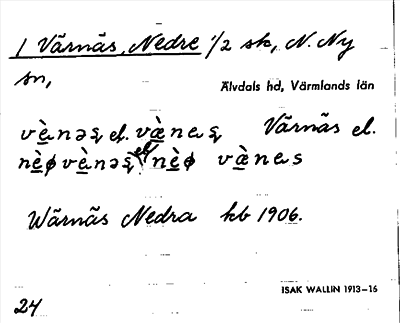 1 Värnäs, Nedre 1/2 sk, N. Ny
sn,
Älvdals hd, Värmlands län
vè̱nəs̨ el. væ̱̀nas̨ Värnäs el.
nè̱øvè̱nəs̨ el. nè̱ø væ̱̀nas
Wärnäs Nedra kb 1906.
ISAK WALLIN 1913–16
24